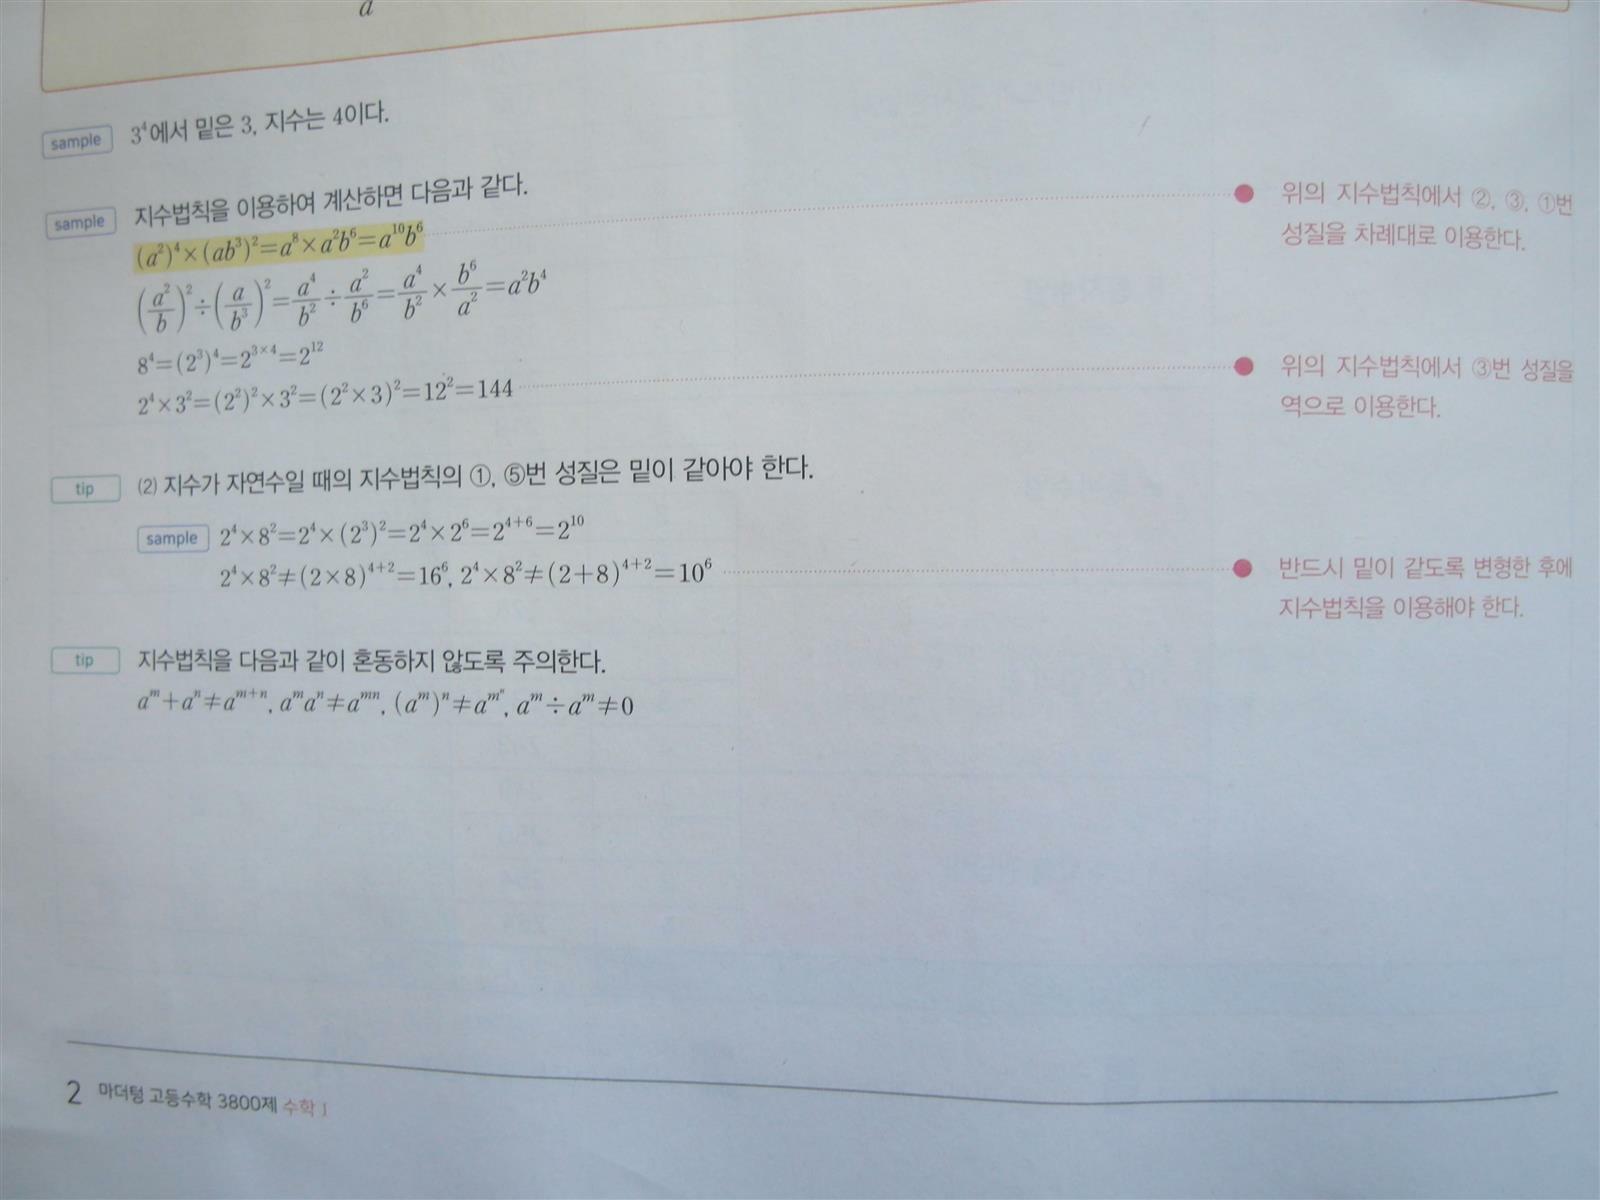 a
sample 3⁴에서 밑은 3, 지수는 4이다.
sample 지수법칙을 이용하여 계산하면 다음과 같다.
(a²)⁴×(ab³)²=a⁸×a²b⁶=a¹⁰b⁶
위의 지수법칙에서 ②, ③, ①번
성질을 차례대로 이용한다.
(a²/b)²÷(a/b³)²=a⁴/b²÷a²/b⁶=a⁴/b²×b⁶/a²=a²b⁴
8⁴=(2³)⁴=2³ˣ⁴=2¹²
2⁴×3²=(2²)²×3²=(2²×3)²=12²=144
위의 지수법칙에서 ③번 성질을
역으로 이용한다.
tip (2) 지수가 자연수일 때의 지수법칙의 ①, ⑤번 성질은 밑이 같아야 한다.
sample 2⁴×8²=2⁴×(2³)²=2⁴×2⁶=2⁴⁺⁶=2¹⁰
2⁴×8²≠(2×8)⁴⁺²=16⁶, 2⁴×8²≠(2+8)⁴⁺²=10⁶
반드시 밑이 같도록 변형한 후에
지수법칙을 이용해야 한다.
tip 지수법칙을 다음과 같이 혼동하지 않도록 주의한다.
a^m+a^n≠a^(m+n), a^m a^n≠a^(mn), (a^m)^n≠a^(m^n), a^m÷a^m≠0
2 마더텅 고등수학 3800제 수학 I